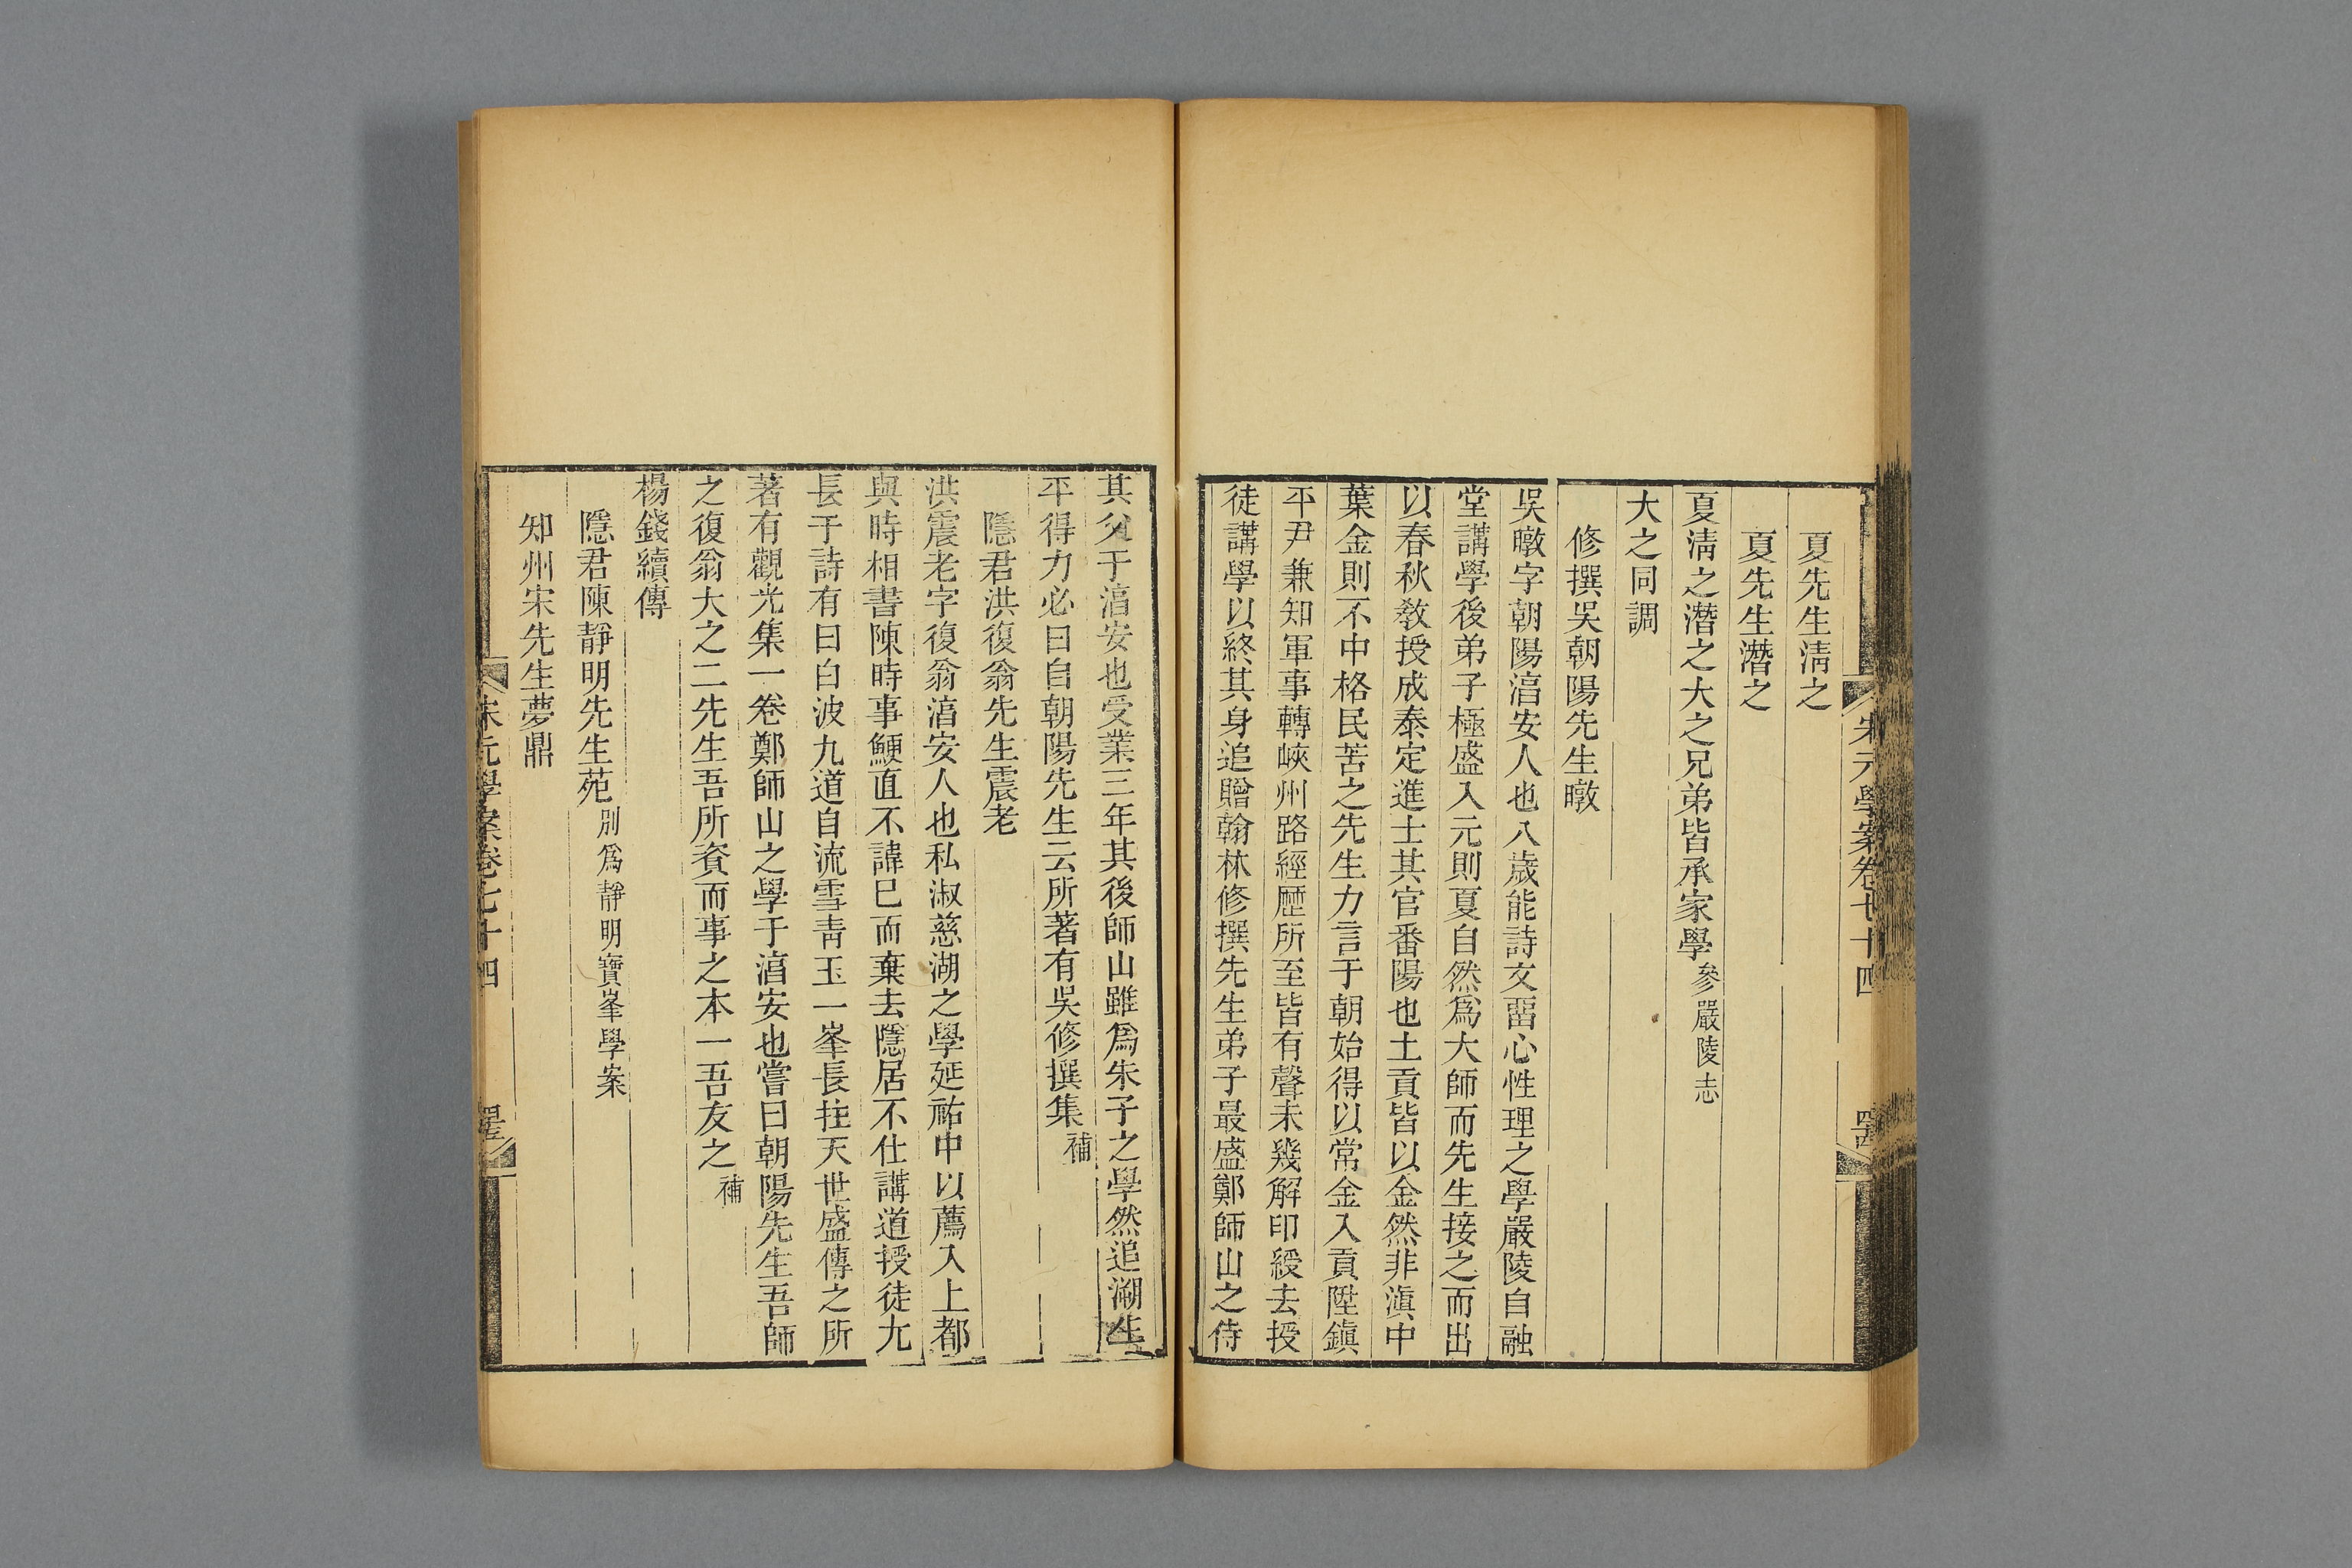 宋元學案卷七十四
夏先生淸之
夏先生濳之
夏淸之濳之大之兄弟皆承家學參嚴陵志
大之同調
修撰吳朝陽先生暾
吳暾字朝陽湻安人也八歲能詩文畱心性理之學嚴陵自融
堂講學後弟子極盛入元則夏自然爲大師而先生接之而出
以春秋敎授成泰定進士其官番陽也土貢皆以金然非滇中
葉金則不中格民苦之先生力言于朝始得以常金入貢陞鎭
平尹兼知軍事轉峽州路經歷所至皆有聲未幾解印綬去授
徒講學以終其身追贈翰林修撰先生弟子最盛鄭師山之侍
其父于湻安也受業三年其後師山雖爲朱子之學然追溯生
平得力必曰自朝陽先生云所著有吳修撰集補
隱君洪復翁先生震老
洪震老字復翁湻安人也私淑慈湖之學延祐中以薦入上都
與時相書陳時事鯁直不諱已而棄去隱居不仕講道授徒尤
長于詩有曰白波九道自流雪靑玉一峯長拄天世盛傳之所
著有觀光集一卷鄭師山之學于湻安也嘗曰朝陽先生吾師
之復翁大之二先生吾所資而事之本一吾友之補
楊錢續傳
隱君陳靜明先生苑別爲靜明寶峯學案
知州宋先生夢鼎
宋元學案卷七十四